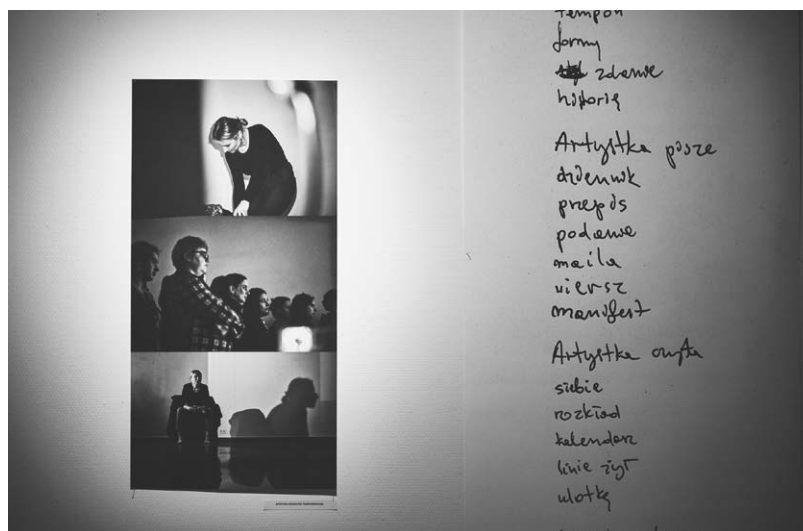 formy
zdanie
historię
Artystka pisze
dziennik
przepis
podanie
maila
wiersz
manifest
Artystka czyta
siebie
rozkład
kalendarz
linie żył
ulotkę